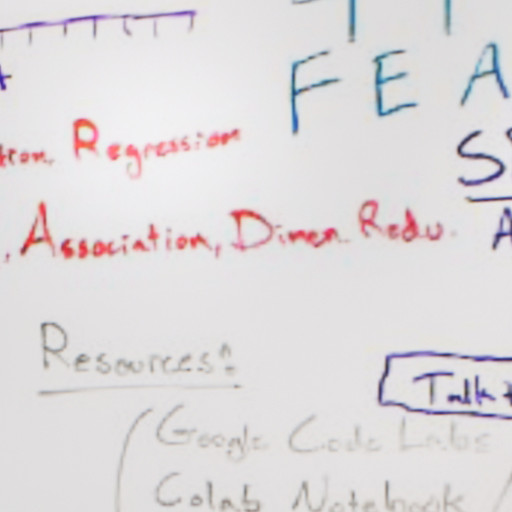 FEA
Regression
Association, Dimen. Redu.
Resources:
Talk
Google Code Labs
Colab Notebook